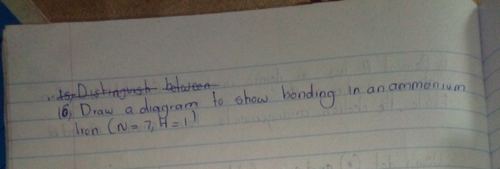 15, Distinguish between
16, Draw a diagram to show bonding in an ammonium
Iron (N = 7, H = 1)